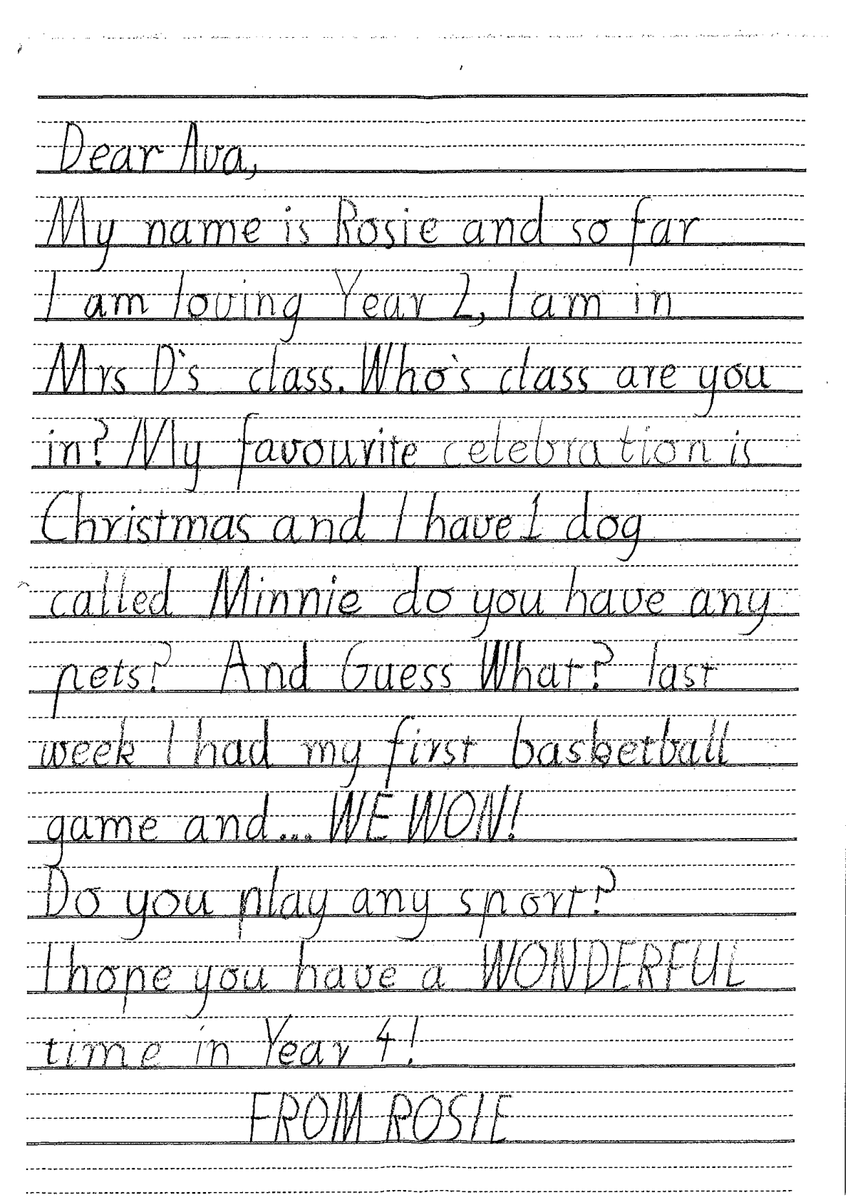 Dear Ava,
My name is Rosie and so far
I am loving Year 2, I am in
Mrs D's class. Who's class are you
in? My favourite celebration is
Christmas and I have 1 dog
called Minnie do you have any
pets? And Guess What? last
week I had my first basketball
game and... WE WON!
Do you play any sport?
I hope you have a WONDERFUL
time in Year 4!
FROM ROSIE